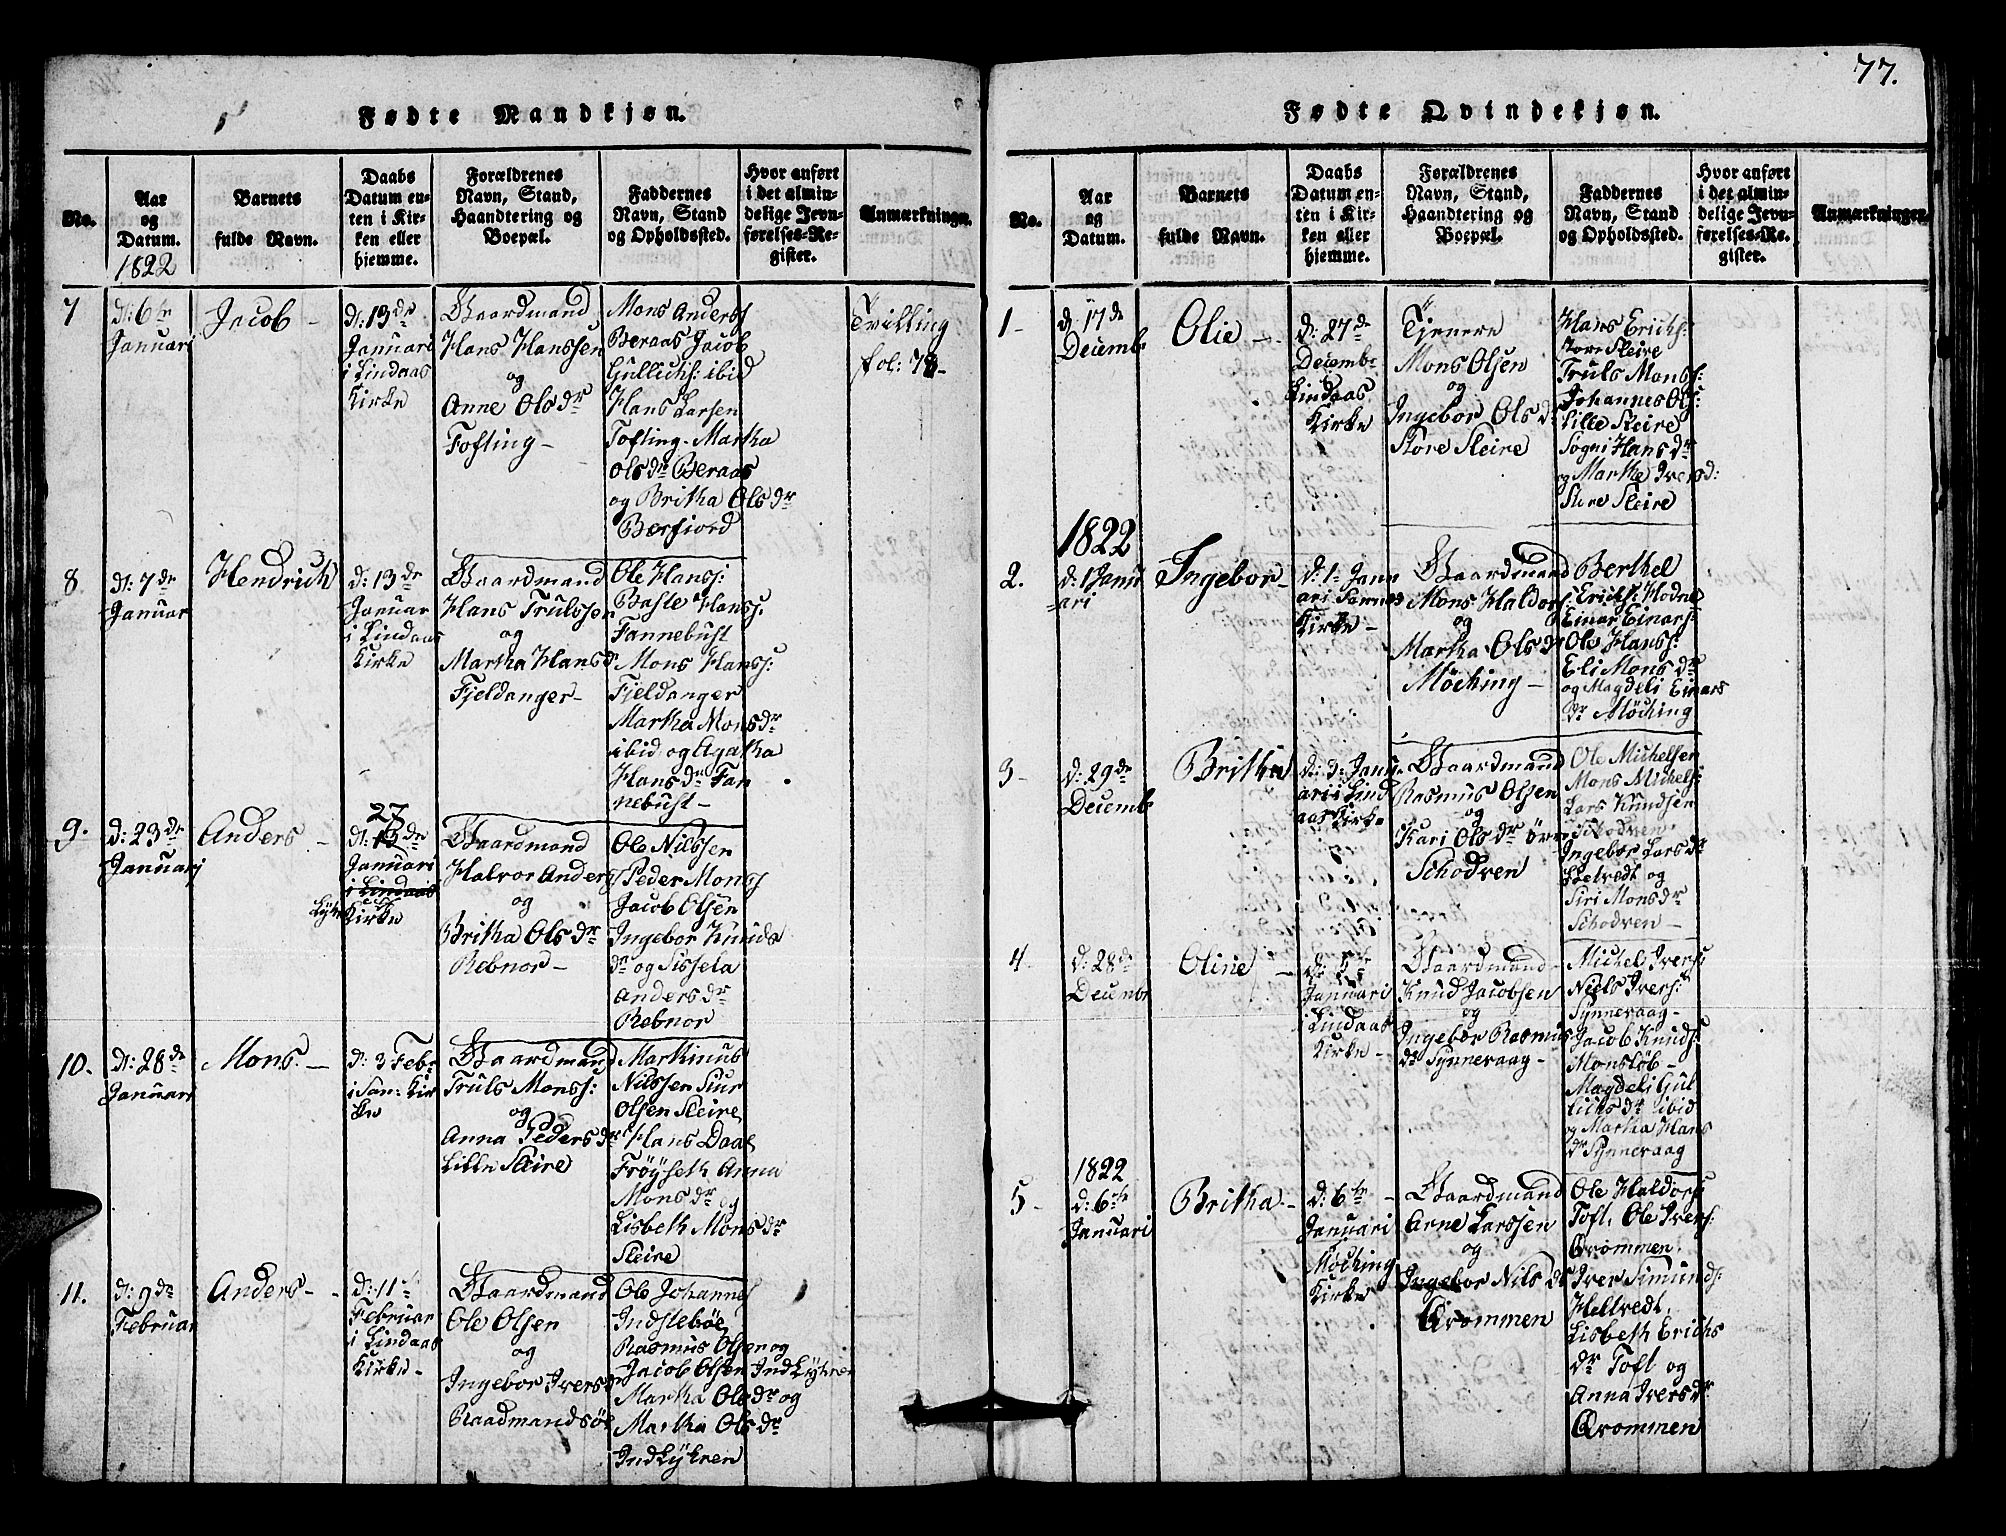 77.
Fødte Mandkjøn.
No.
Aar
og
Datum.
1822
Barnets
fulde Navn.
Daabs
Datum en-
ten i Kir-
ken eller
hjemme.
Forældrenes
Navn, Stand,
Haandtering og
Boepæl.
Faddernes
Navn, Stand
og Opholdssted.
Hvor anført
i det almin-
delige Jevn-
førelses-Re-
gister.
Anmærkninger.
7
d: 6te
Januari
Jacob
d: 13de
Januari
i Lindaas
Kirke
Gaardmand
Hans Hanssen
og
Anne Olsdr
Tofting
Mons Anders
Beraas Jacob
Gullichs: ibid
Hans Larsen
Tofting. Martha
Olsdr Beraas
og Britha Olsdr
Berfiord
Tvilling
fol: 78
8
d: 7de
Januar
Hendrich
d: 13de
Januar
i Lindaas
Kirke
Gaardmand
Hans Trulssen
og
Martha Hansd
Fjeldanger
Ole Hanss:
Basle Hans:
Fannebust
Mons Hans:
Fjeldanger
Martha Monsdr
ibid og Agatha
Hansdr Fan
nebust
9.
d: 23de
Januari
Anders
27
d: 13de
Januari
i Lindaas
Kirke
Gaardmand
Halvor Anders
og
Britha Olsdr
Rebnor
Ole Nilssen
Peder Mons
Jacob Olsen
Ingebor Knuds
dr og Sissela
Andersdr
Rebnor
10.
d: 28de
Januari
Mons.
d: 3 Febr
i San- Kir
ke
Gaardmand
Truls Monss:
og
Anna Pedersdr
Lille Sleire
Martinus
Nilssen Siur
Olsen Sleire
Hans Daae
Frøyseth Anna
Monsdr og
Lisbeth Monsdr
Sleire
11.
d: 9de
Februar
Anders
d: 11te
Februar
i Lindaas
Kirke
Gaardmand
Ole Olsen
og
Ingebor Iversd
Raadmandsø
Ole Johannes
Indslebøe
Rasmus Olsen og
Jacob Olsen Indlykren
Martha Olsdr og
Martha Olsdr
Indlykren
Fødte Qvindekjøn.
No.
Aar
og
Datum.
Barnets
fulde Navn.
Daabs
Datum en-
ten i Kir-
ken eller
hjemme.
Forældrenes
Navn, Stand,
Haandtering og
Boepæl.
Faddernes
Navn, Stand
og Opholdssted.
Hvor anført
i det almin-
delige Jevn-
førelses-Re-
gister.
Anmærkninger.
1
d: 17de
Decembr
Olie
d: 27de
Decembr
Lindaas
Kirke
Tjenere
Mons Olsen
og
Ingebor Olsdr
Store Sleire
Hans Erichs:
Store Sleire
Truls Mons:
Johannes Ols:
Lille Sleire
Sogni Hansdr
og Marthe Iversd:
Store Sleire
1822
2.
d: 1 Janu
ari
Ingebor
d: 1 Janu
ari Samnes
Kirke
Gaardmand
Mons Haldors
og
Martha Olsdr
Möching
Berthel
Erichs: Hodne
Einar Einars:
Ole Hanss:
Eli Monsdr
og Magdeli Einars
dr Möching
3
d: 29de
Decembr
Britha
d: 3: Janu
ari i Lind
aas Kirke
Gaardmand
Rasmus Olsen
og
Kari Olsdr övre
Schodven
Ole Michelsen
Mons Michels:
Lars Knudsen
Schodven
Ingebor Larsdr
Helvedt og
Siri Monsdr
Schodven
4
d: 28de
Decembr
Oline
d: 5te
Januari
i Lindaas
Kirke
Gaardmand
Knud Jacobsen
og
Ingebor Rasmus
dr Synneraag
Michel Ivers:
Niels Ivers:
Synneraag
Jacob Knuds:
Monsløb
Magdeli Gul
lichsdr ibid
og Martha Hans
dr Synneraag
1822
5
d: 6te
Januari
Britha
d: 6te
Januari
Möching
Kirke
Gaardmand
Arne Larssen
og
Ingebor Nilsdr
Qvommen
Ole Haldors
Toft, Ole Ivers:
Qvommen
Iver Simunds:
Hellvedt,
Lisbeth Erichs
dr Toft og
Anna Iversdr
Qvommen